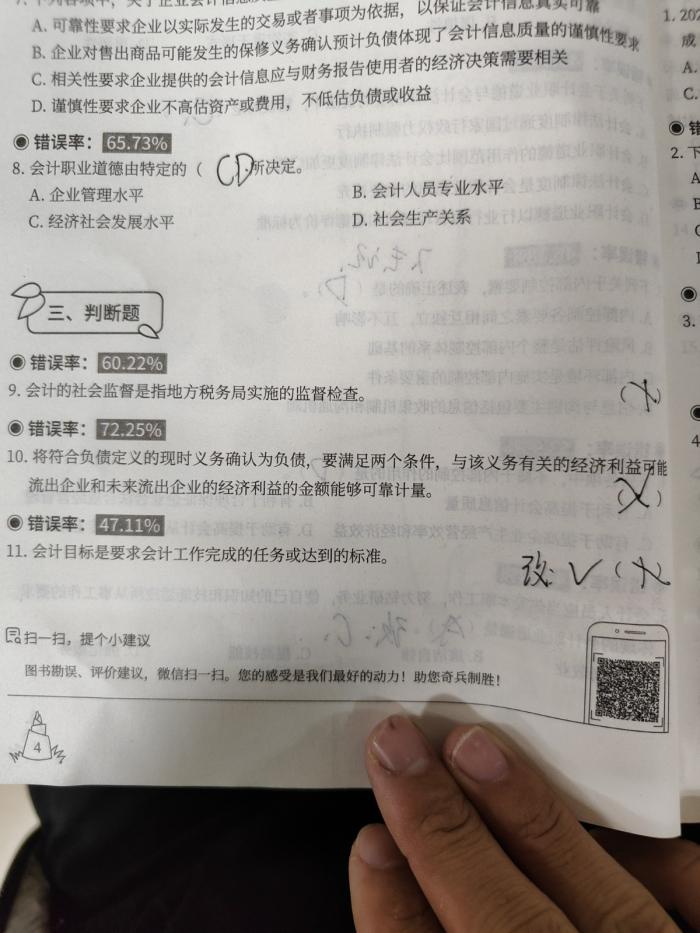 A. 可靠性要求企业以实际发生的交易或者事项为依据，以保证会计信息真实可靠
B. 企业对售出商品可能发生的保修义务确认预计负债体现了会计信息质量的谨慎性要求
C. 相关性要求企业提供的会计信息应与财务报告使用者的经济决策需要相关
D. 谨慎性要求企业不高估资产或费用，不低估负债或收益
错误率： 65.73%
8. 会计职业道德由特定的（ CD ）所决定。
A. 企业管理水平
B. 会计人员专业水平
C. 经济社会发展水平
D. 社会生产关系
三、判断题
错误率： 60.22%
9. 会计的社会监督是指地方税务局实施的监督检查。 （X）
错误率： 72.25%
10. 将符合负债定义的现时义务确认为负债，要满足两个条件，与该义务有关的经济利益可能
流出企业和未来流出企业的经济利益的金额能够可靠计量。 （X）
错误率： 47.11%
11. 会计目标是要求会计工作完成的任务或达到的标准。 改: √ （X
扫一扫，提个小建议
图书勘误、评价建议，微信扫一扫。您的感受是我们最好的动力！助您奇兵制胜！
4
1. 202
成
A.
C.
错
2. 下
A
3.
4